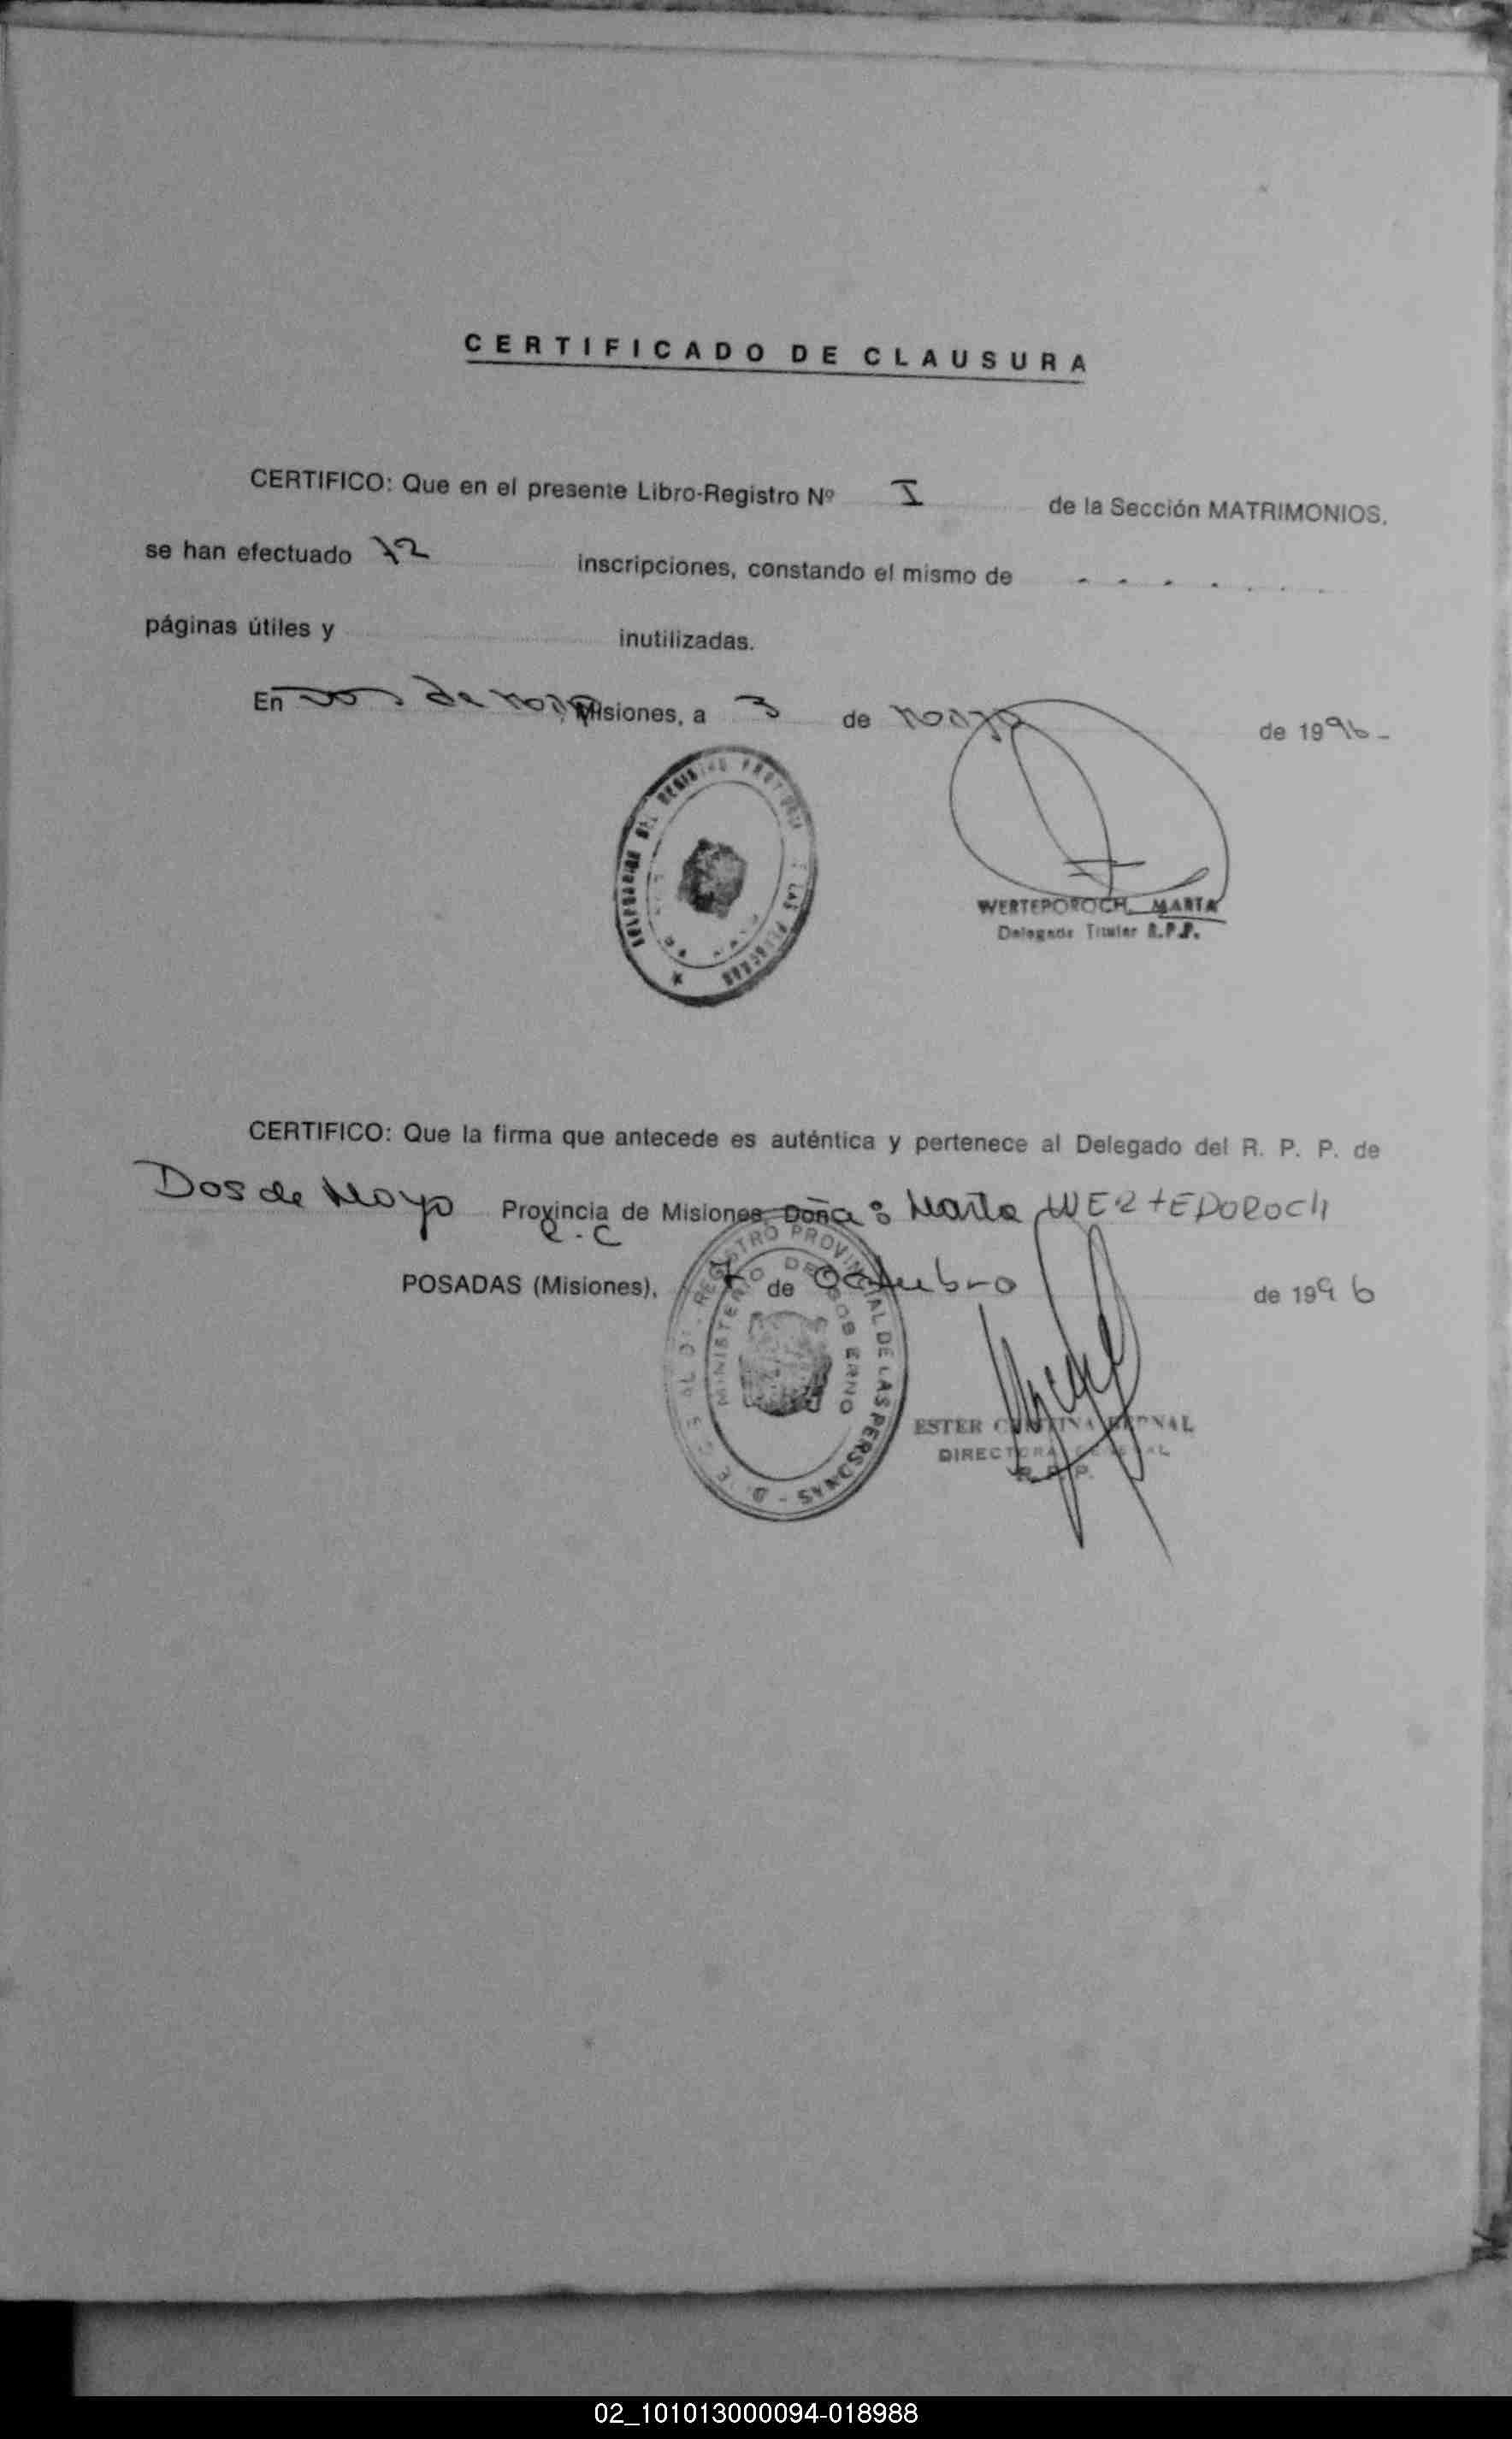 CERTIFICADO DE CLAUSURA
CERTIFICO: Que en el presente Libro-Registro Nº I de la Sección MATRIMONIOS,
se han efectuado 12 inscripciones, constando el mismo de - - - - - - -
páginas útiles y inutilizadas.
En Dos de Mayo, Misiones, a 3 de mayo de 1996-
WERTEPOROCH, MARTA
Delegada Titular R.P.P.
CERTIFICO: Que la firma que antecede es auténtica y pertenece al Delegado del R. P. P. de
Dos de Mayo Provincia de Misiones, Doña: Marta WERTEPOROCH
R.C
POSADAS (Misiones), 7 de Octubro de 1996
REGISTRO PROVINCIAL DE LAS PERSONAS
MINISTERIO DE GOBIERNO
ESTER CRISTINA BERNAL
DIRECTORA GENERAL
R. P. P.
02_101013000094-018988